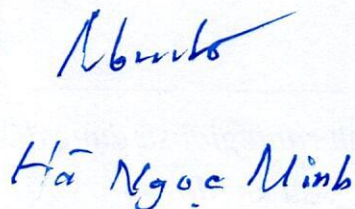 Hà Ngọc Minh